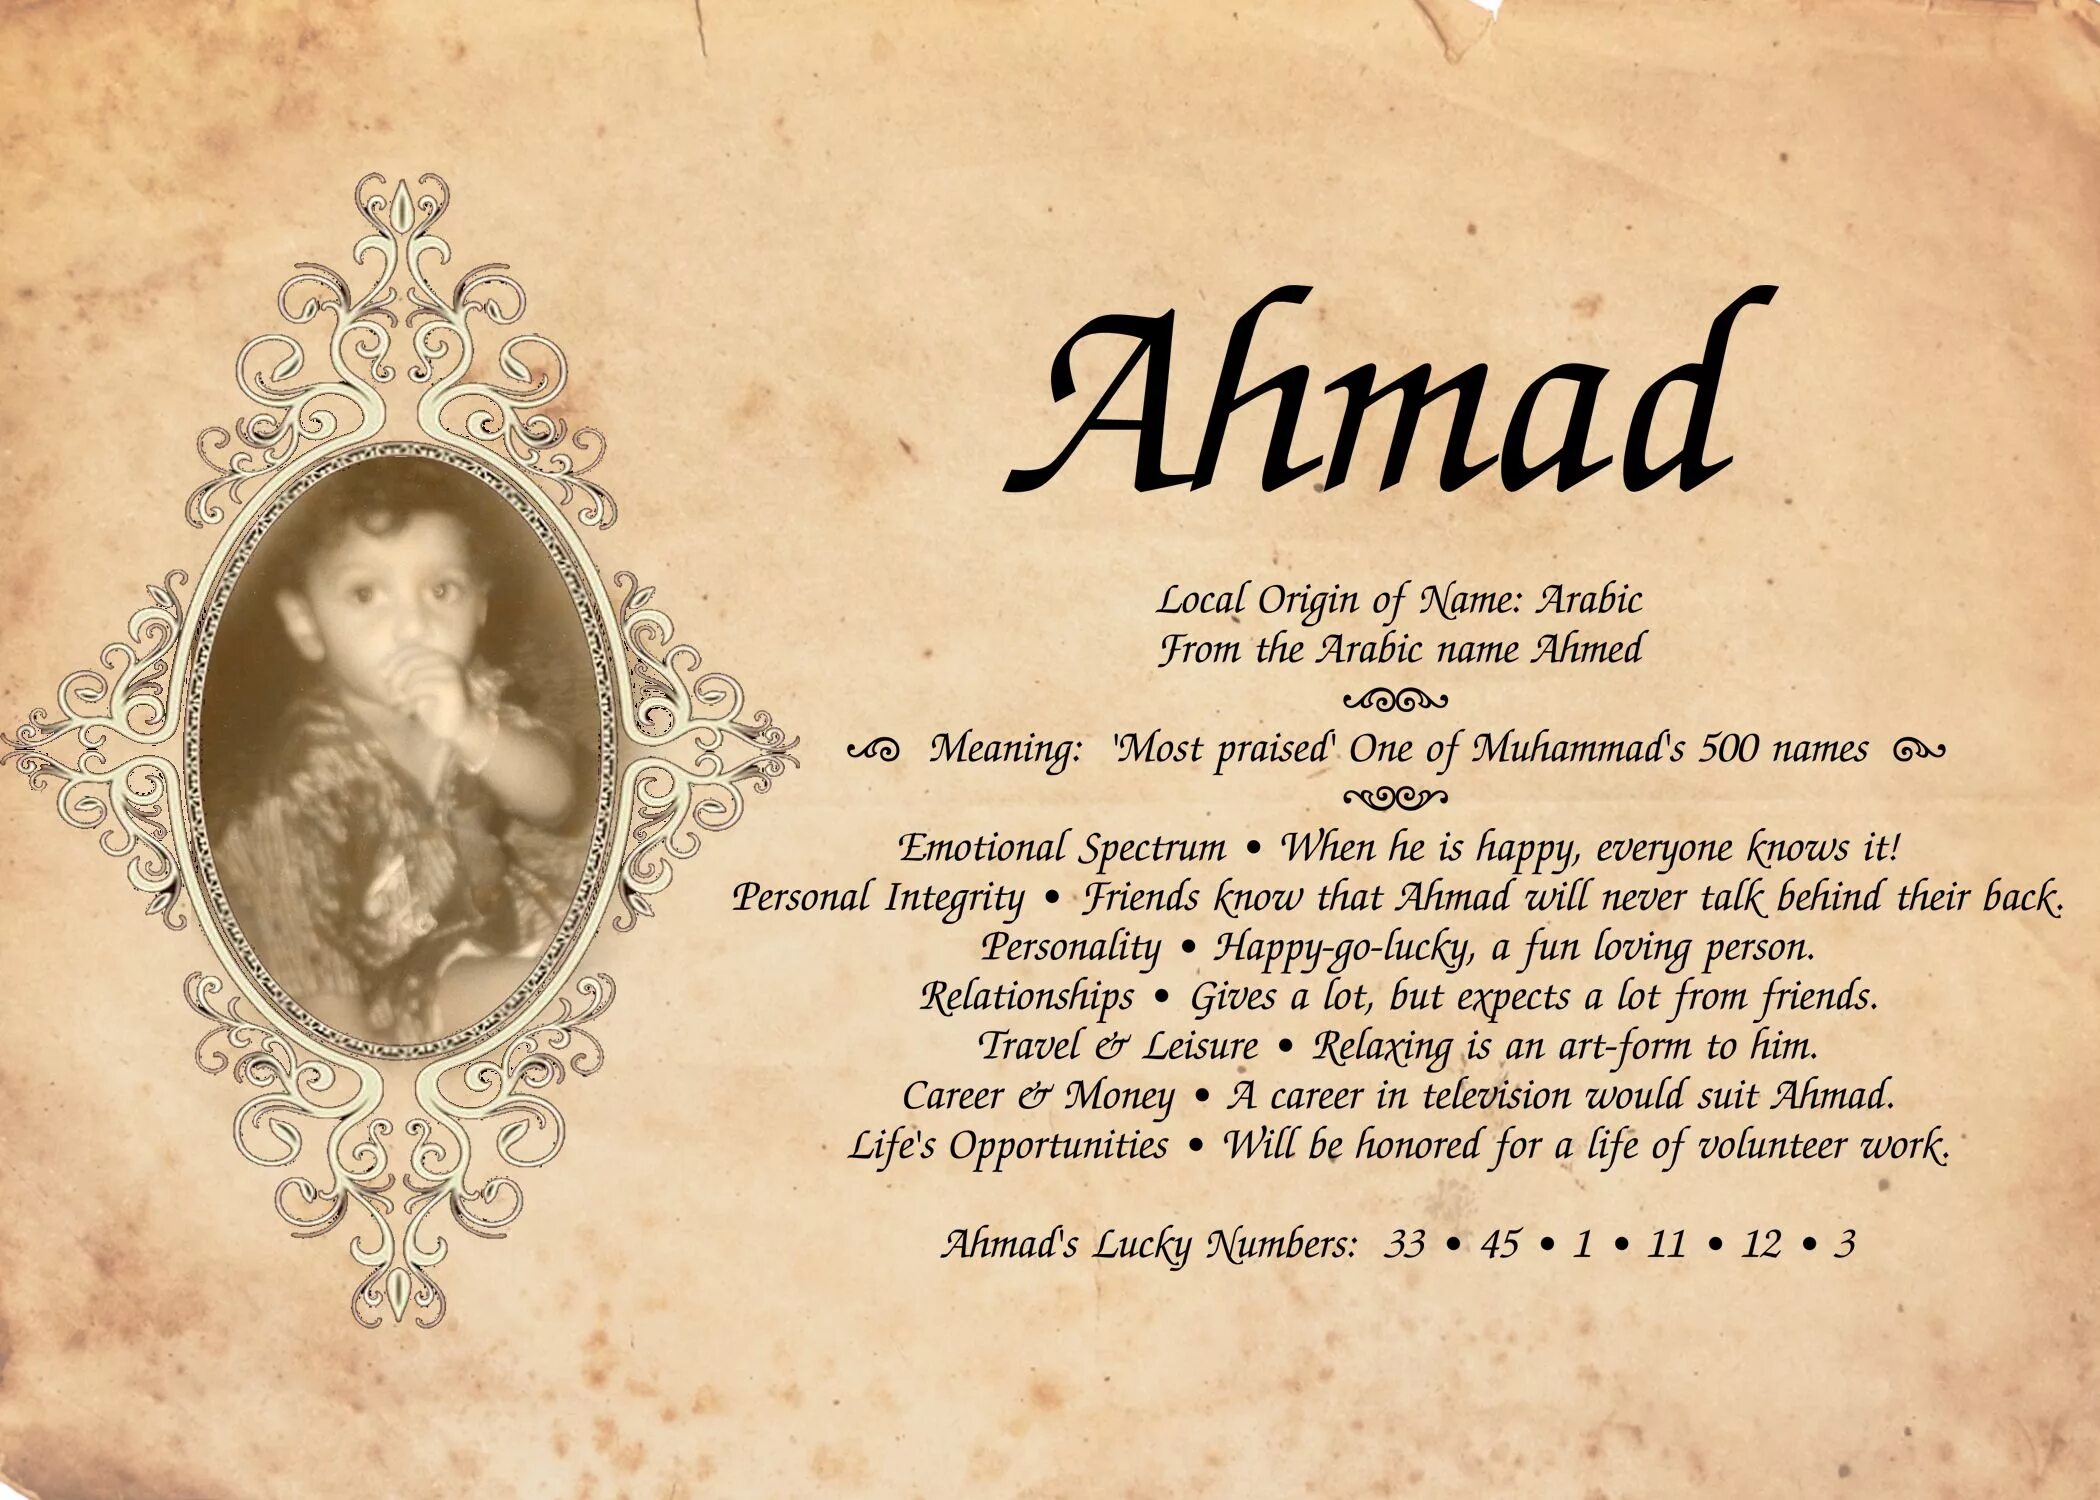 Ahmad
Local Origin of Name: Arabic
From the Arabic name Ahmed
Meaning: 'Most praised' One of Muhammad's 500 names
Emotional Spectrum • When he is happy, everyone knows it!
Personal Integrity • Friends know that Ahmad will never talk behind their back.
Personality • Happy-go-lucky, a fun loving person.
Relationships • Gives a lot, but expects a lot from friends.
Travel & Leisure • Relaxing is an art-form to him.
Career & Money • A career in television would suit Ahmad.
Life's Opportunities • Will be honored for a life of volunteer work.
Ahmad's Lucky Numbers: 33 • 45 • 1 • 11 • 12 • 3